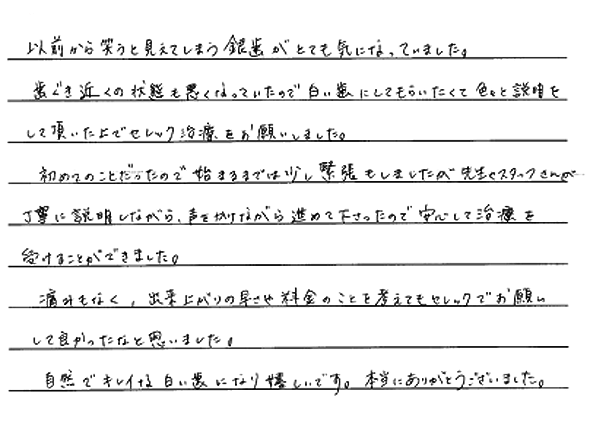 以前から笑うと見えてしまう銀歯がとても気になっていました。
歯ぐき近くの状態も悪くなっていたので白い歯にしてもらいたくて色々と説明を
して頂いた上でセレック治療をお願いしました。
初めてのことだったので始まるまでは少し緊張もしましたが先生やスタッフさんが
丁寧に説明しながら、声をかけながら進めて下さったので安心して治療を
受けることができました。
痛みもなく、出来上がりの早さや料金のことを考えてもセレックでお願い
して良かったなと思いました。
自然でキレイな白い歯になり嬉しいです。本当にありがとうございました。